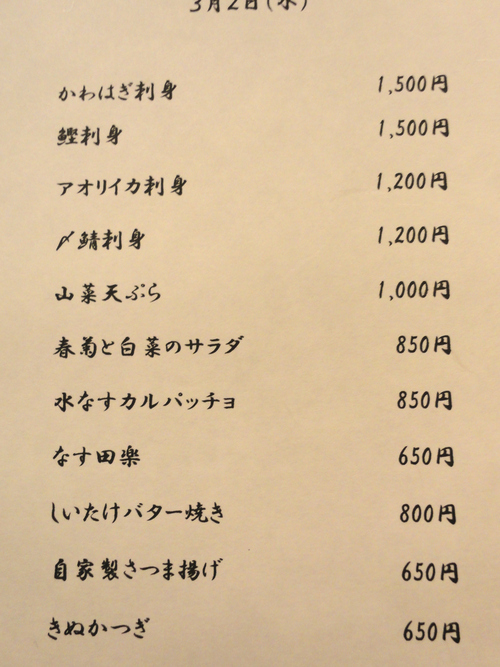 3月2日(水)
かわはぎ刺身 1,500円
鰹刺身 1,500円
アオリイカ刺身 1,200円
〆鯖刺身 1,200円
山菜天ぷら 1,000円
春菊と白菜のサラダ 850円
水なすカルパッチョ 850円
なす田楽 650円
しいたけバター焼き 800円
自家製さつま揚げ 650円
きぬかつぎ 650円